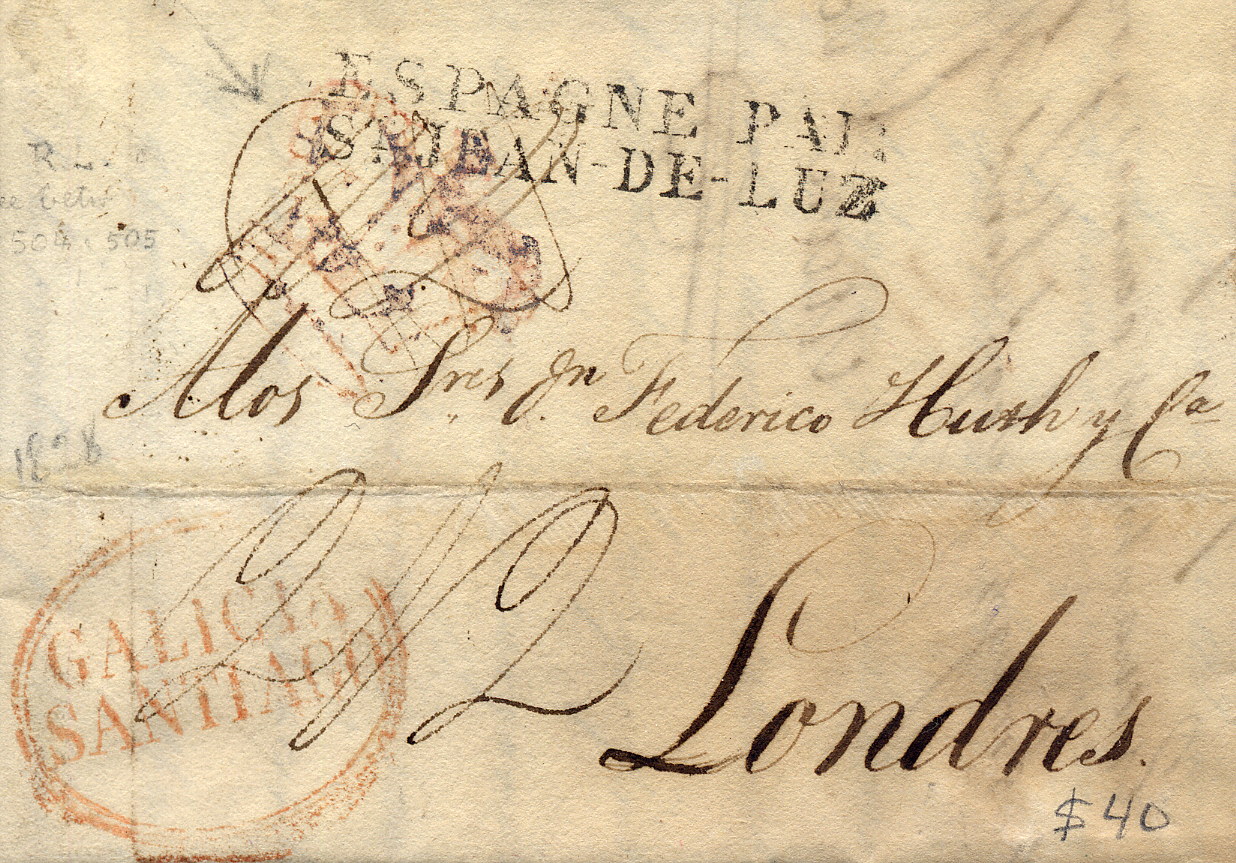 ESPAGNE PAR
ST JEAN-DE-LUZ
R.L.
504. 505
A los Sres Jn Federico Huth y Ca
1828
2/2
GALICIA
SANTIAGO
Londres.
$40